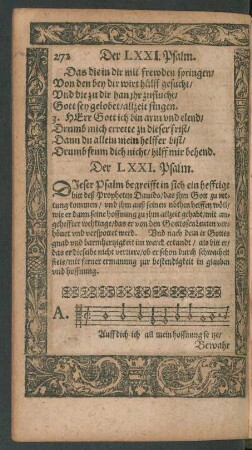 272 Der LXXI. Psalm.
Das die in dir mit frewden springen/
Von den bey dir wirt hülff gesucht/
Vnd die zu dir han jhr zuflucht/
Gott sey gelobet/allzeit singen.
3. HErr Gott ich bin arm vnd elend/
Drumb mich errette zu dieser frist/
Dann du allein mein helffer bist/
Drumb säum dich nicht/hilff mir behend.
Der LXXI. Psalm.
Dieser Psalm begreifft in sich ein hefftige
bitt deß Propheten Dauids/das jhm Gott zu rettung
kommen/vnd jhm auß seinen nöthen helffen wöll/
wie er dann seine hoffnung zu jhm allzeit gehabt/mit angeheffter
wehklage/das er von den Gottlosen
vnd verspottet werd. Vnd nach dem er Gottes
gnad vnd barmhertzigkeit im warck erkandt/als bitt er/
das er dieselbe nicht verliere/ob er schon durch schwachheit
fiele/mit ferner ermanung zur bestendigkeit in glauben
vnd hoffnung.
A.
Auff dich ich all mein hoffnung setze/
Bewahr